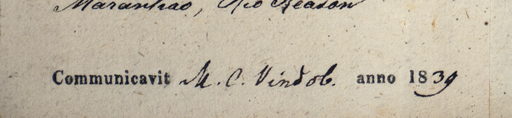 Maranhao, Rio Keason
Communicavit M. C. Vindob. anno 1839